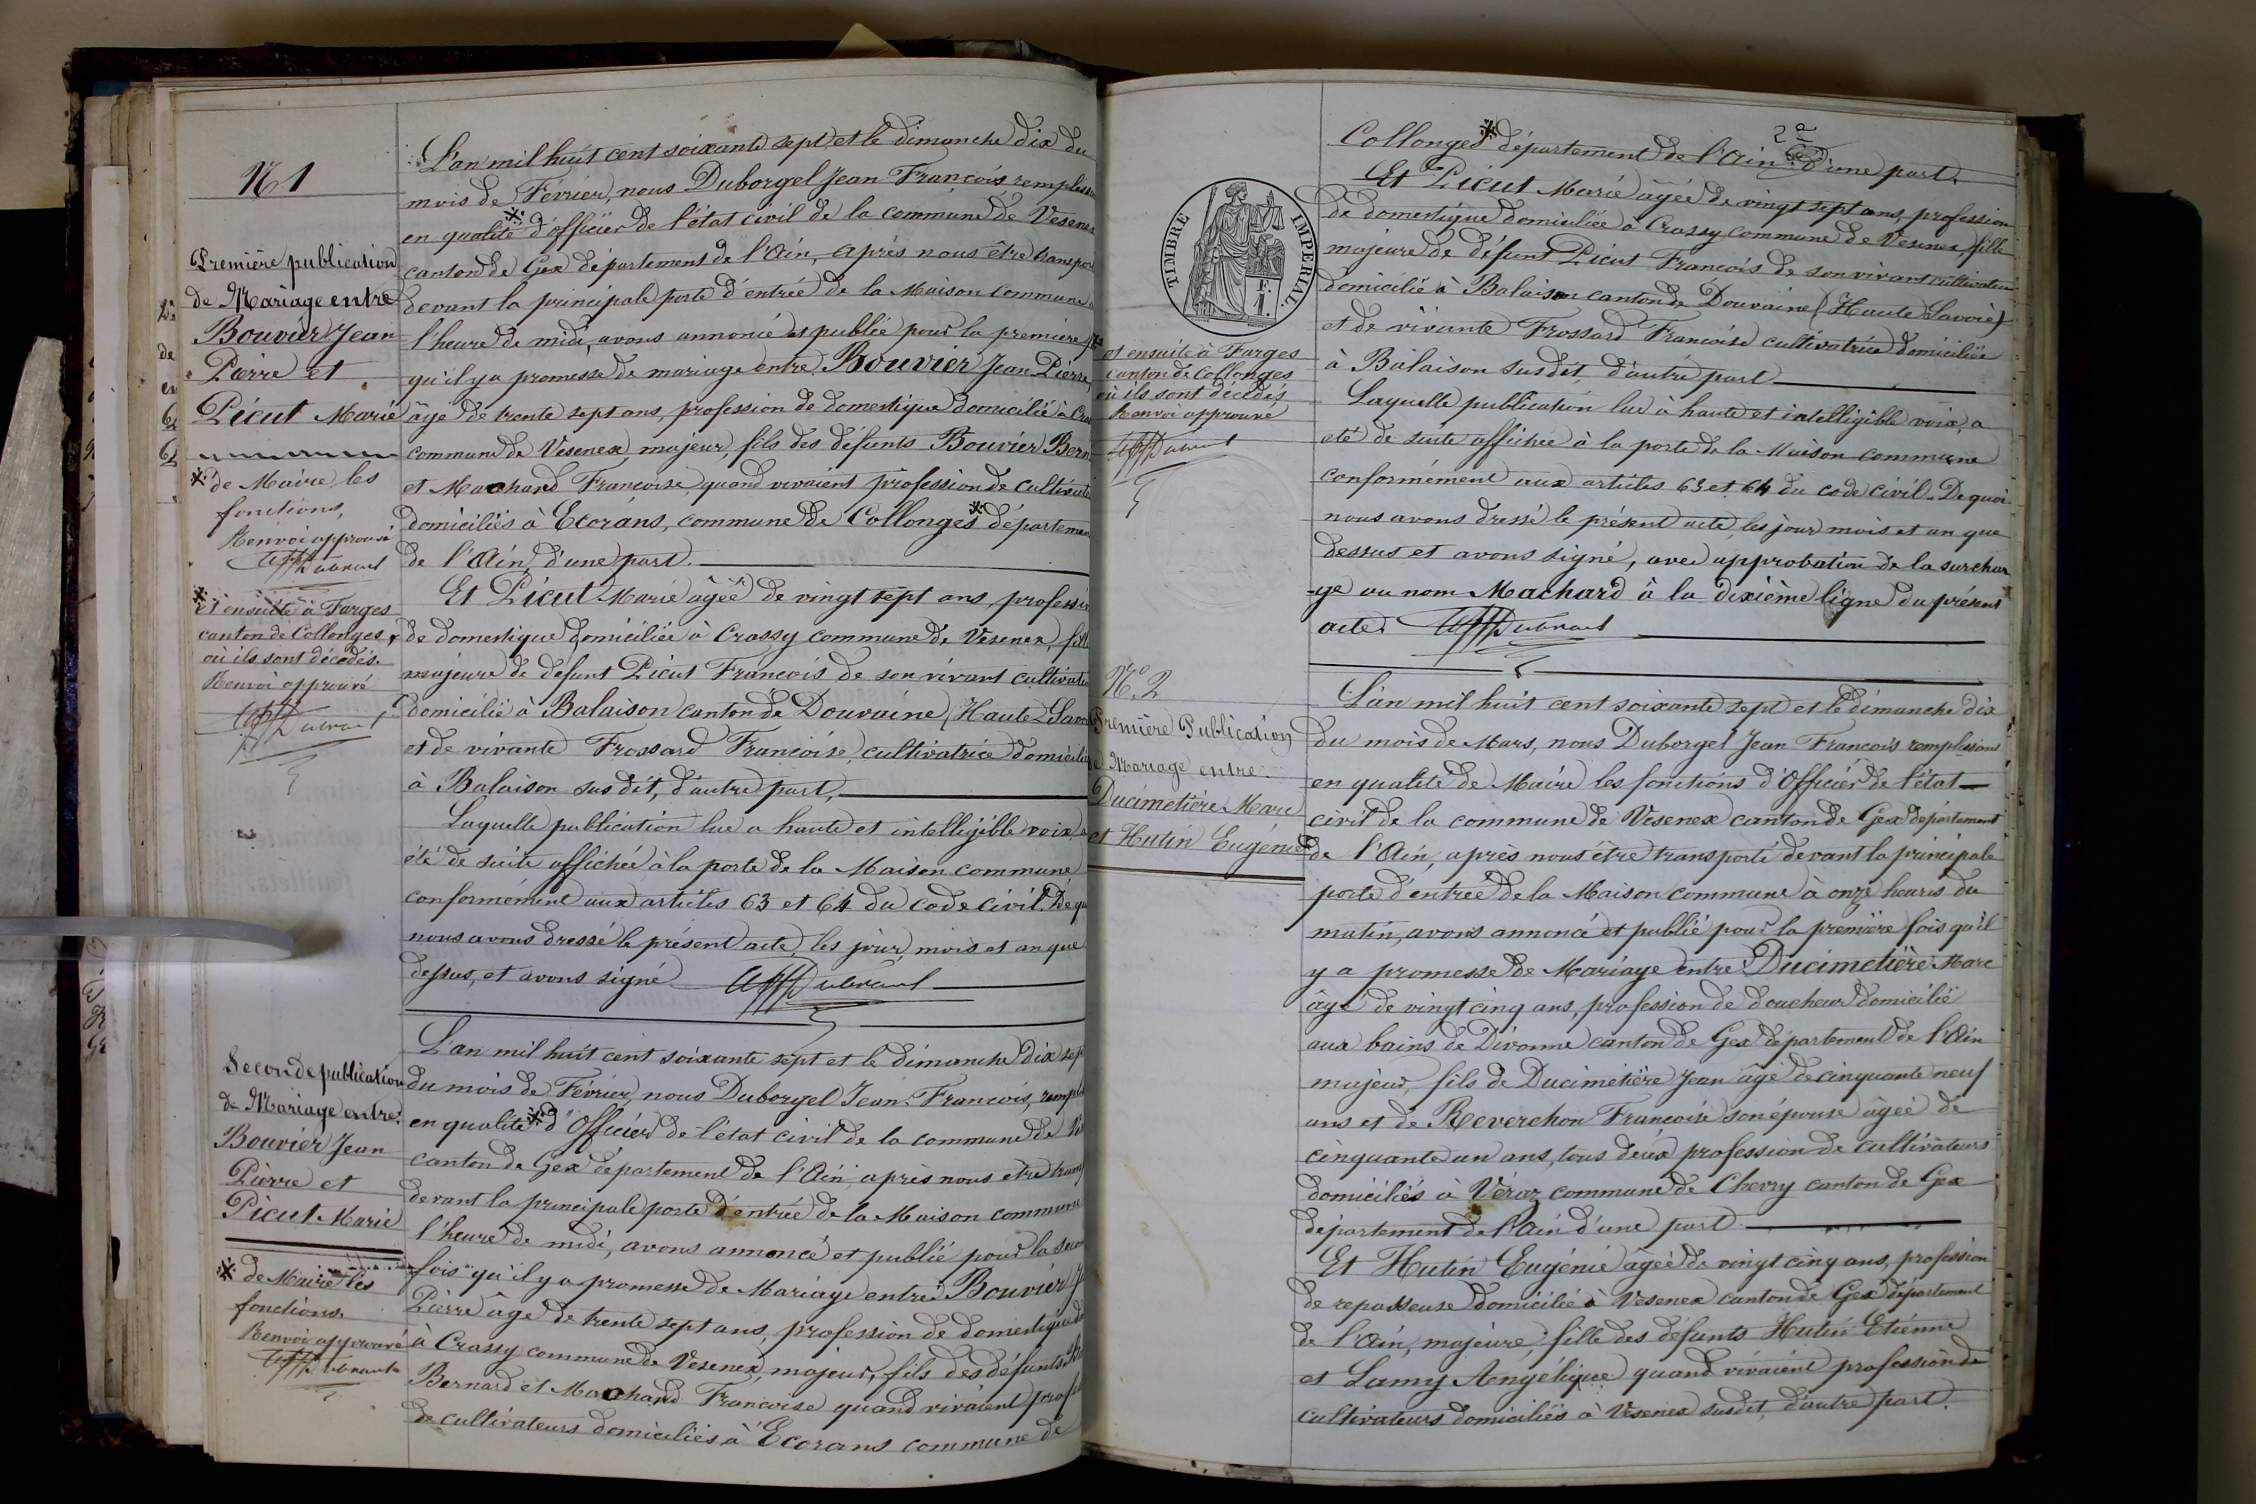 N° 1
Première publication
de Mariage entre
Bouvier Jean
Pierre et
Picut Marie
* de Maire les
fonctions,
Renvoi approuvé
* et ensuite à Farges
canton de Collonges,
où ils sont décédés.
Renvoi approuvé
L'an mil huit cent soixante sept et le dimanche dix du
mois de Février, nous Duborgel Jean François remplissan
en qualité * d'officier de l'état civil de la commune de Vesenex
canton de Gex département de l'Ain, après nous être transpor
devant la principale porte d'entrée de la Maison commune
l'heure de midi, avons annoncé et publié pour la première
qu'il y a promesse de mariage entre Bouvier Jean Pierre,
âgé de trente sept ans, profession de domestique domicilié à Cra
commune de Vesenex, majeur, fils des défunts Bouvier Bern
et Machard Françoise, quand vivaient profession de cultivate
domiciliés à Ecorans, commune de Collonges * départemen
de l'Ain, d'une part.
Et Picut Marie âgée de vingt sept ans, professio
de domestique domiciliée à Crassy commune de Vesenex, fill
majeure de défunt Picut François de son vivant cultivate
domicilié à Balaison canton de Douvaine (Haute Savo
et de vivante Frossard Françoise, cultivatrice domicilié
à Balaison susdit, d'autre part,
Laquelle publication lue a haute et intelligible voix, a
été de suite affichée à la porte de la Maison commune
conformément aux articles 63 et 64 du code civil. De qu
nous avons dressé le présent acte, les jour, mois et an que
dessus, et avons signé
Seconde publication
de Mariage entre
Bouvier Jean
Pierre et
Picut Marie
* de Maire les
fonctions.
Renvoi approuvé
L'an mil huit cent soixante sept et le dimanche dix sep
du mois de Février, nous Duborgel Jean François, rempl
en qualité * d'Officier de l'état civil de la commune de Ve
canton de Gex département de l'Ain, après nous être trans
devant la principale porte d'entrée de la Maison commune
l'heure de midi, avons annoncé et publié pour la seco
fois qu'il y a promesse de Mariage entre Bouvier J
Pierre âgé de trente sept ans, profession de domestique do
à Crassy commune de Vesenex, majeur, fils des défunts
Bernard et Machard Françoise quand vivaient profe
de cultivateurs domiciliés à Ecorans commune de
TIMBRE IMPERIAL
1 F.
et ensuite à Farges
canton de Collonges
où ils sont décédés
Renvoi approuvé
Collonges * département de l'Ain d'une part.
Et Picut Marie âgée de vingt sept ans, profession
de domestique domiciliée à Crassy commune de Vesenex, fille
majeure de défunt Picut François de son vivant cultivateur
domicilié à Balaison canton de Douvaine (Haute Savoie)
et de vivante Frossard Françoise cultivatrice domiciliée
à Balaison susdit, d'autre part
Laquelle publication lue à haute et intelligible voix, a
été de suite affichée à la porte de la Maison commune
conformément aux articles 63 et 64 du code civil. De quoi
nous avons dressé le présent acte, les jour mois et an que
dessus et avons signé, avec approbation de la surchar
-ge au nom Machard à la dixième ligne du présent
acte.
N° 2
Première Publication
de Mariage entre
Ducimetière Marc
et Hutin Eugénie
L'an mil huit cent soixante sept et le dimanche dix
du mois de Mars, nous Duborgel Jean François remplissant
en qualité de Maire les fonctions d'Officier de l'état
civil de la commune de Vesenex canton de Gex département
de l'Ain, après nous être transporté devant la principale
porte d'entrée de la Maison commune à onze heures du
matin, avons annoncé et publié pour la première fois qu'il
y a promesse de Mariage entre Ducimetière Marc
âgé de vingt cinq ans, profession de doucheur domicilié
aux bains de Divonne canton de Gex département de l'Ain
majeur, fils de Ducimetière Jean âgé de cinquante neuf
ans et de Reverchon Françoise son épouse âgée de
cinquante un ans, tous deux profession de cultivateurs
domiciliés à Véraz commune de Chevry canton de Gex
département de l'Ain d'une part
Et Hutin Eugénie âgée de vingt cinq ans, profession
de repasseuse domiciliée à Vesenex canton de Gex département
de l'Ain, majeure, fille des défunts Hutin Etienne
et Lamy Angélique quand vivaient profession de
cultivateurs domiciliés à Vesenex susdit, d'autre part.